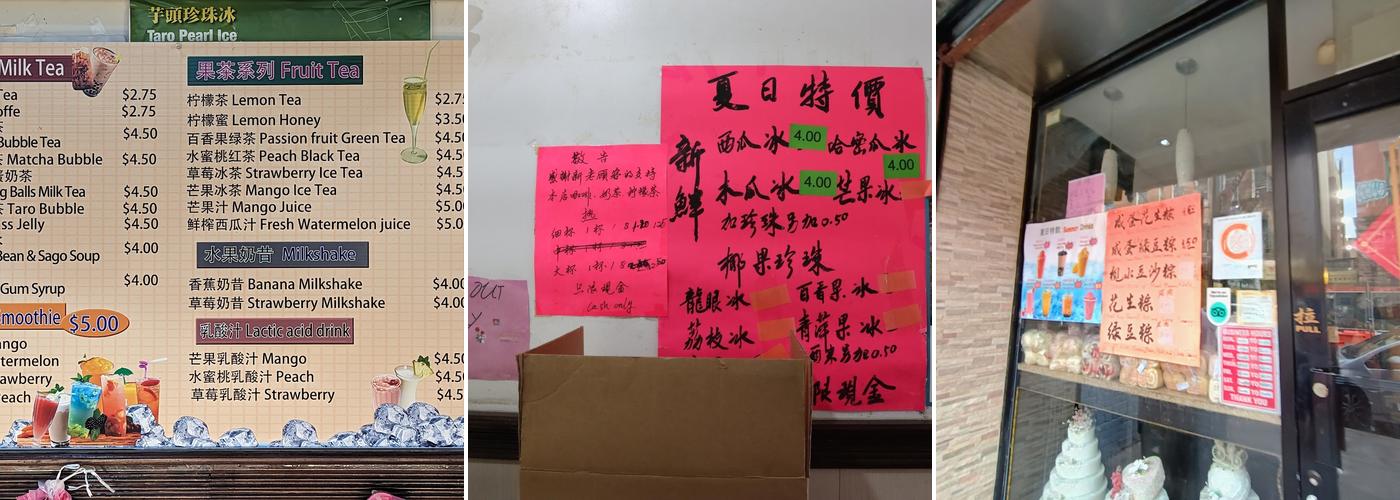 芋頭珍珠冰
Taro Pearl Ice
Milk Tea
Tea $2.75
offe $2.75
茶
Bubble Tea $4.50
Matcha Bubble $4.50
奶茶
g Balls Milk Tea $4.50
Taro Bubble $4.50
ss Jelly $4.50
Bean & Sago Soup $4.00
Gum Syrup $4.00
moothie $5.00
ango
termelon
awberry
each
果茶系列 Fruit Tea
柠檬茶 Lemon Tea $2.75
柠檬蜜 Lemon Honey $3.50
百香果绿茶 Passion fruit Green Tea
水蜜桃红茶 Peach Black Tea $4.50
草莓冰茶 Strawberry Ice Tea $4.50
芒果冰茶 Mango Ice Tea $4.50
芒果汁 Mango Juice $5.00
鲜榨西瓜汁 Fresh Watermelon juice $5.0
水果奶昔 Milkshake
香蕉奶昔 Banana Milkshake $4.00
草莓奶昔 Strawberry Milkshake $4.00
乳酸汁 Lactic acid drink
芒果乳酸汁 Mango $4.50
水蜜桃乳酸汁 Peach $4.50
草莓乳酸汁 Strawberry $4.5
OUT
敬告
感謝新老顧客的支持
本店咖啡、奶茶、柠檬茶
热
细杯 1杯 1.25
中杯 1杯
大杯 1杯
只限現金
Cash only
夏日特價
新鮮
西瓜冰 4.00 哈密瓜冰 4.00
木瓜冰 4.00 芒果冰
加珍珠另加0.50
椰果珍珠
龍眼冰 百香果冰
荔枝冰 青萍果冰
西米另加0.50
限現金
夏日特飲 Summer Drinks
咸蛋花生粽
咸蛋绿豆粽
枧水豆沙粽
花生粽
绿豆粽
BUSINESS HOURS
THANK YOU
拉
PULL